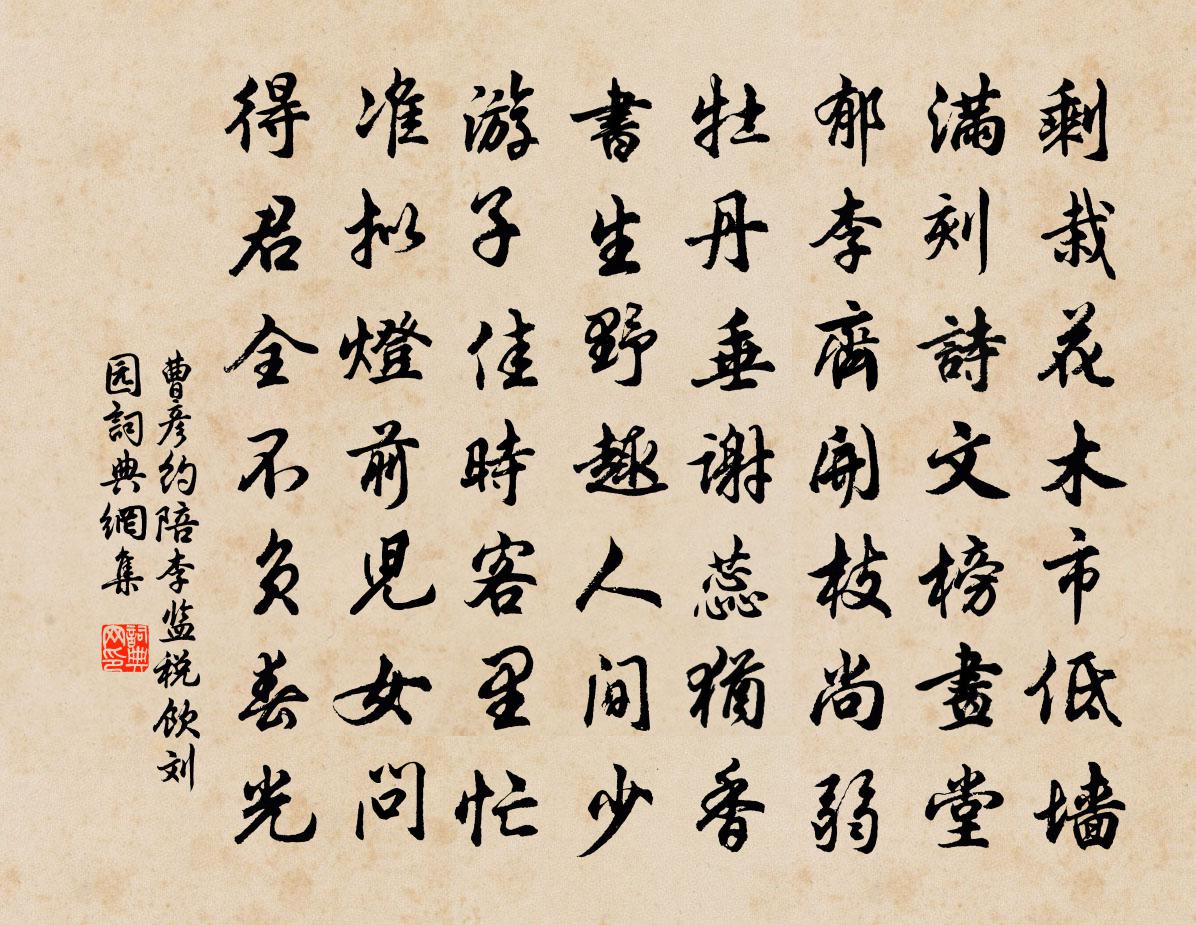 剩栽花木市低墙
满刻詩文榜畫堂
郁李齊開枝尚弱
牡丹垂谢蕊猶香
書生野趣人间少
游子佳時客里忙
准拟燈前児女问
得君全不负春光
曹彦约陪李监税饮刘
园詞典網集
詞典网印